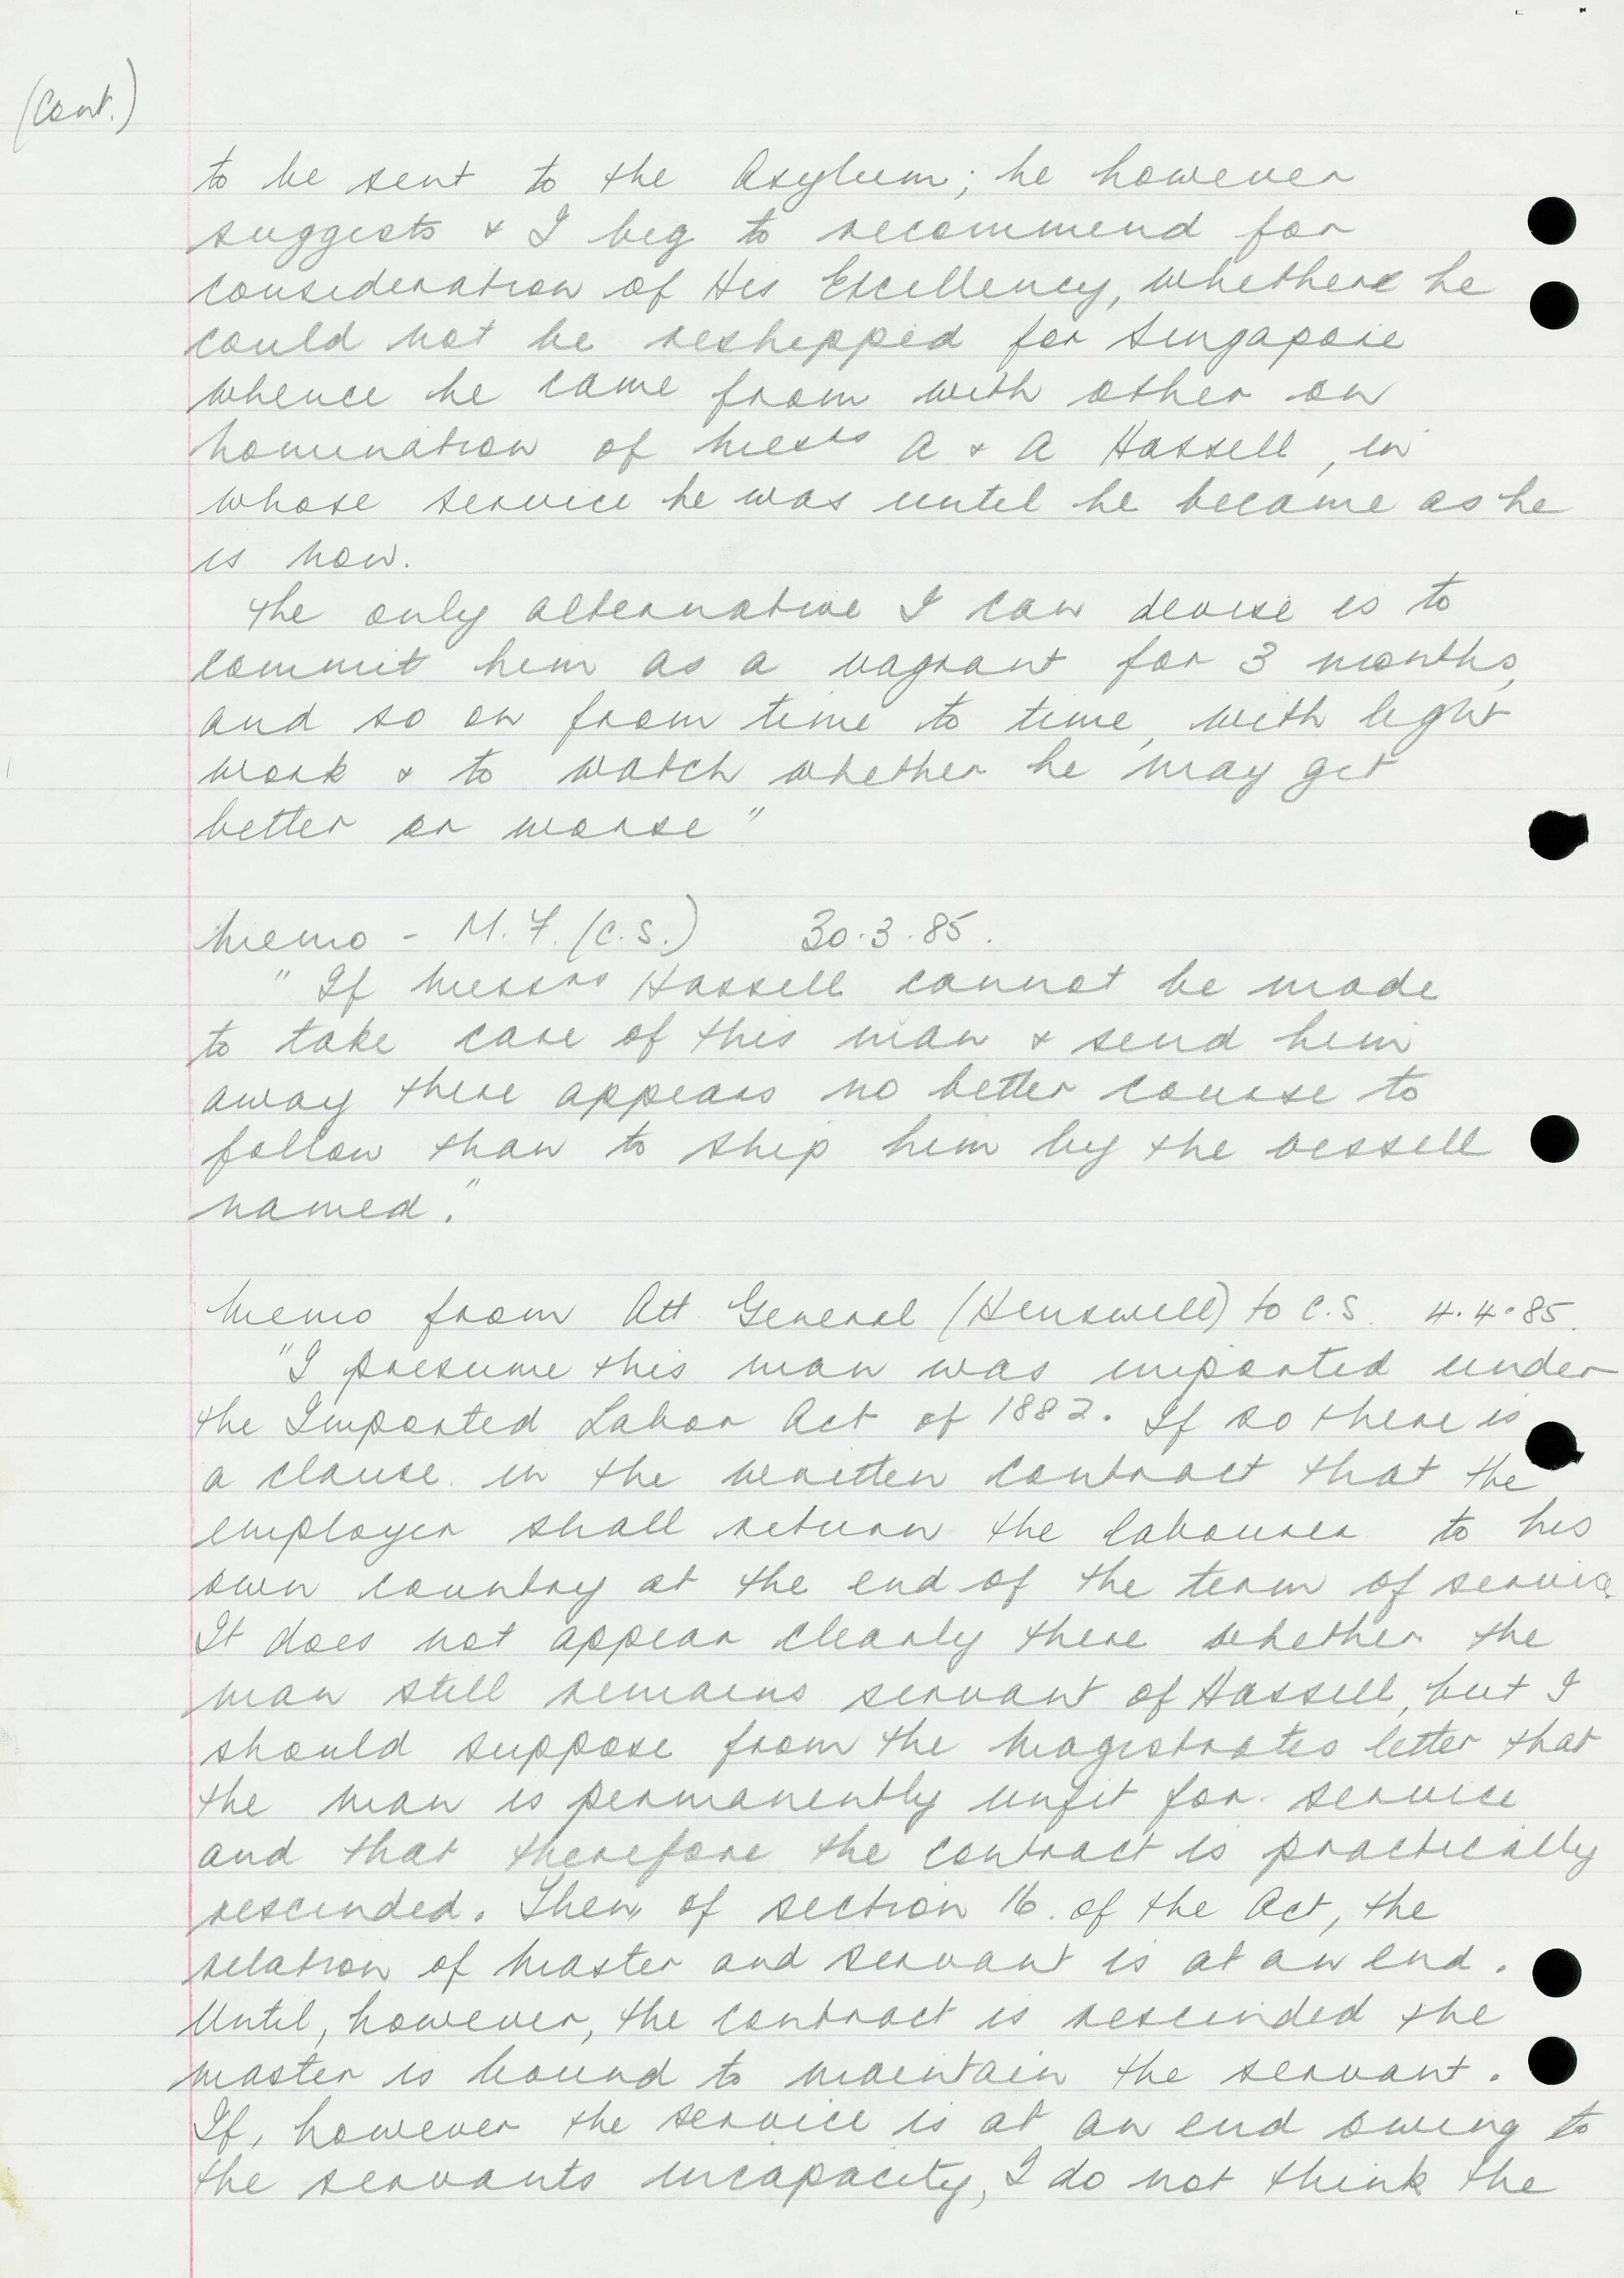 (Cont.)
to be sent to the Asylum; he however
suggests & I beg to recommend for
consideration of His Excellency, whether he
could not be reshipped for Singapore
whence he came from with other on
nomination of Messrs A & A Hassell, in
whose service he was until he became as he
is now.
The only alternative I can devise is to
commit him as a vagrant for 3 months,
and so on from time to time, with light
work & to watch whether he may get
better or worse"
Memo - M.F. (C.S.) 30.3.85.
"If Messrs Hassell cannot be made
to take care of this man & send him
away there appears no better course to
follow than to ship him by the vessell
named."
Memo from Att General (Henswell) to C.S. 4.4.85.
"I presume this man was imported under
the Imported Labor Act of 1882. If so there is
a clause in the written contract that the
employer shall return the labourer to his
own country at the end of the term of service.
It does not appear clearly there whether the
man still remains servant of Hassell, but I
should suppose from the Magistrates letter that
the man is permanently unfit for service
and that therefore the contract is practically
rescinded. Then, of section 16. of the Act, the
relation of Master and servant is at an end.
Until, however, the contract is rescinded the
master is bound to maintain the servant.
If, however the service is at an end owing to
the servants incapacity, I do not think the